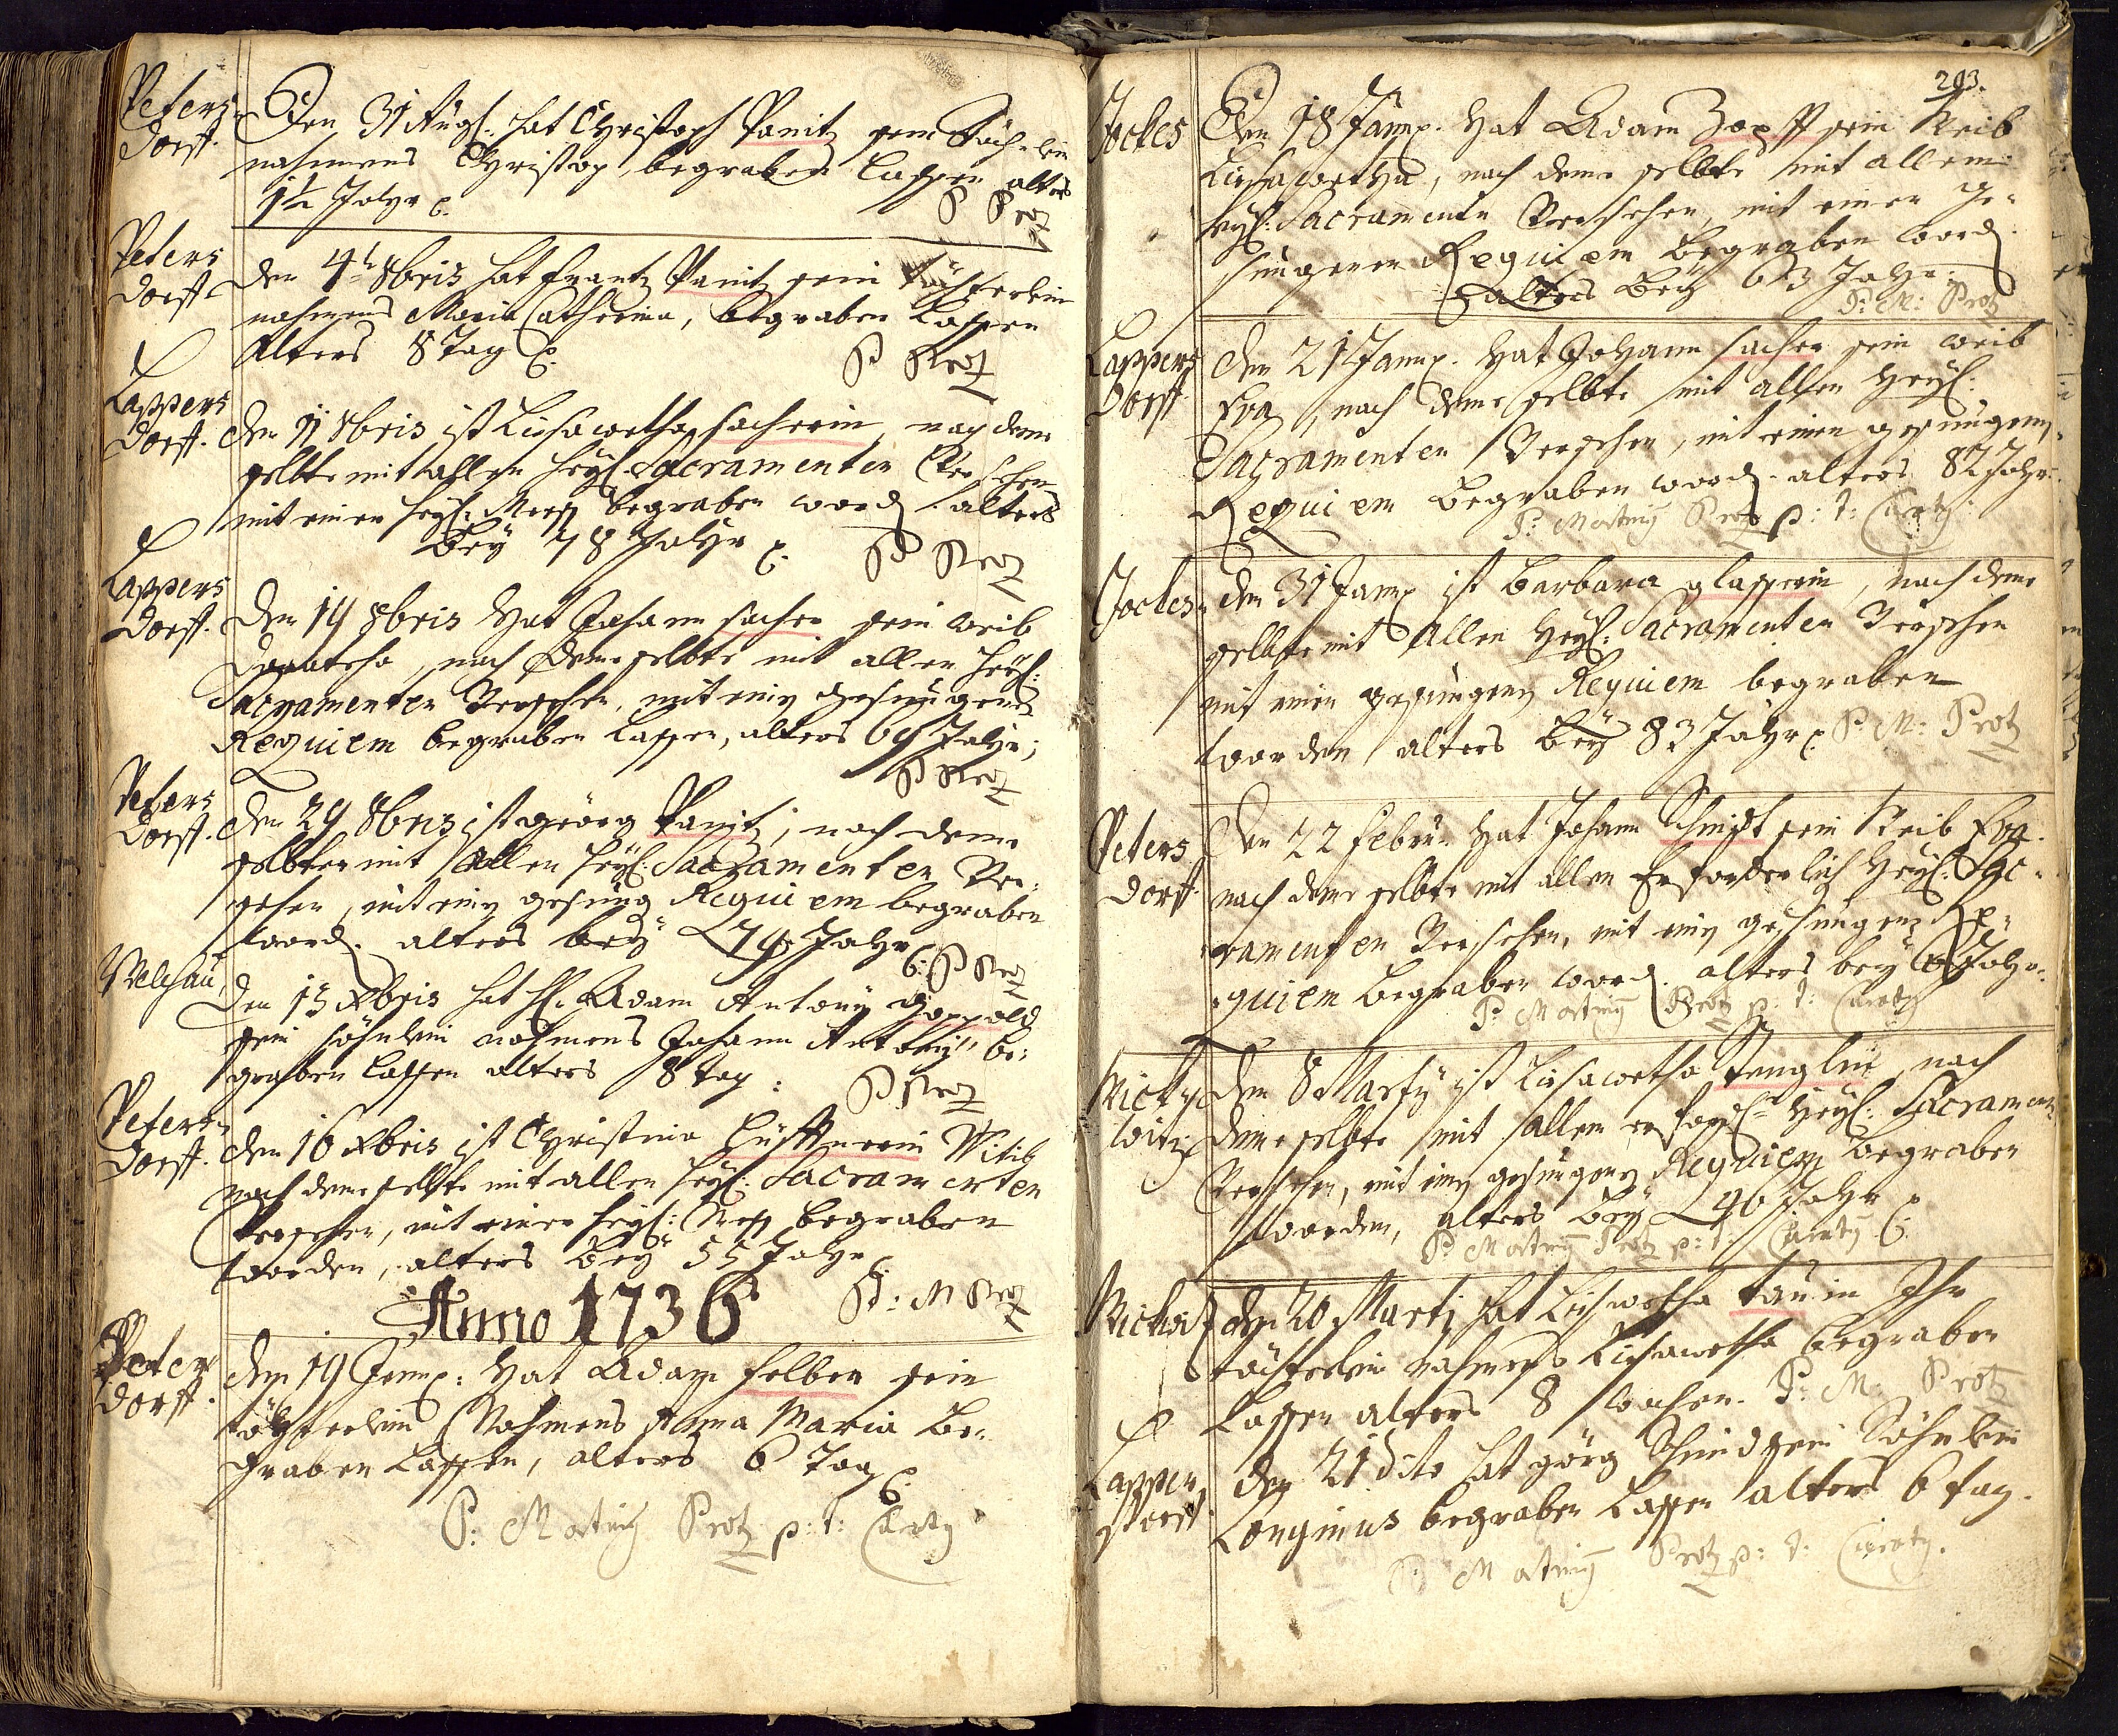 Peters
dorff.
Den 31 Augs: hat Christoph Panitz sein
nahmens Christop, begraben laßen alters
1½ Jahr
P Protz
Peters
dorff
den 4t 8bris hat Frantz Panitz sein töchterlein
nahmens Maria Catherina, begraben laßen
Alters 8 Tag
P Protz
Lappers
dorff.
den 11 8bris ist Liesawetha sacherin, nach deme
selbte mit allen heyl: Sacramenten Versehen
mit einer heyl: Meeß begraben word. alters
bey 78 Jahr
P Protz
Lappers
dorff.
den 14 8bris hat Johann sacher sein weib
Dorothea, nach deme selbte mit allen heyl:
Sacramenten Versehen, mit ein gesungenes
Requiem begraben laßen, alters 69 Jahr;
P Protz
Peters
dorff.
den 29 8bris ist görg Panitz, nach deme
selbter mit allen heyl: Sacramenten Ver-
sehen, mit ein gesung Requiem begraben
word. alters bey 74 Jahr
P Protz
den 13 xbris hat H. Adam Antony Goppold
sein söhnlein nahmens Johann Antoniy be-
graben laßen alters 8 tag:
P Protz
Peters-
dorff.
den 16 xbris ist Christina Witib
nach deme selbte mit allen heyl: Sacramenten
Versehen, mit einer heyl: Meß begraben
worden, alters bey 55 Jahr
P: M Protz
Anno 1736
Peters
dorff.
den 19 Jenn: hat Adam felber sein
töchterlein Nahmens Anna Maria be-
graben laßen, alters 6 Tag
P: Martiny Protz p: t: Curaty
293.
Jockes
Den 18 Jann. hat Adam Zopff sein Weib
Liesawetha, nach deme selbte mit allen
heyl: Sacramentn Versehen, mit einen ge-
sungenen Requiem begraben word
alters bey 63 Jahr:
P: M: Protz
Lappers
dorff
den 21 Jann. hat Johann sacher sein weib
Eva, nach deme selbte mit allen heyl:
Sacramenten Versehen, mit einen gesungeny
Requiem begraben word. alters 82 Jahr.
P: Martiny Protz p: t: Curaty
Jockes
den 31 Jann ist Barbara glasserin, nach deme
selbte mit allen heyl: Sacramenten Versehen
mit einen gesungeny Requiem begraben
worden alters bey 83 Jahr P: M: Protz
Peters
dorff
Den 22 Febru. hat Johann Schmidt sein Weib Eva.
nach deme selbte mit allen Erforderlich heyl: Sac-
ramenten Versehen, mit ein gesungen Re-
quiem begraben word. alters bey Jahr.
P: Martiny Protz p: t: Curaty
witz
den 8 Marty ist Liesawetha Tenglin, nach
deme selbte mit allen heyl: Sacramen
Versehen, mit ein gesungeny Requiem begraben
worden, alters bey 46 Jahr
P: Martiny Protz p: t: Curaty
den 20 Martj hat Liesawetha tauin Ihr
töchterlein nahmens Liesawetha begraben
laßen alters 8 wochen. P: M: Protz
Lappers
dorff
den 21 dito hat görg Schmid sein Söhnlein
Longinus begraben laßen alters 6 tag.
P: Martiny Protz p: t: Curaty.